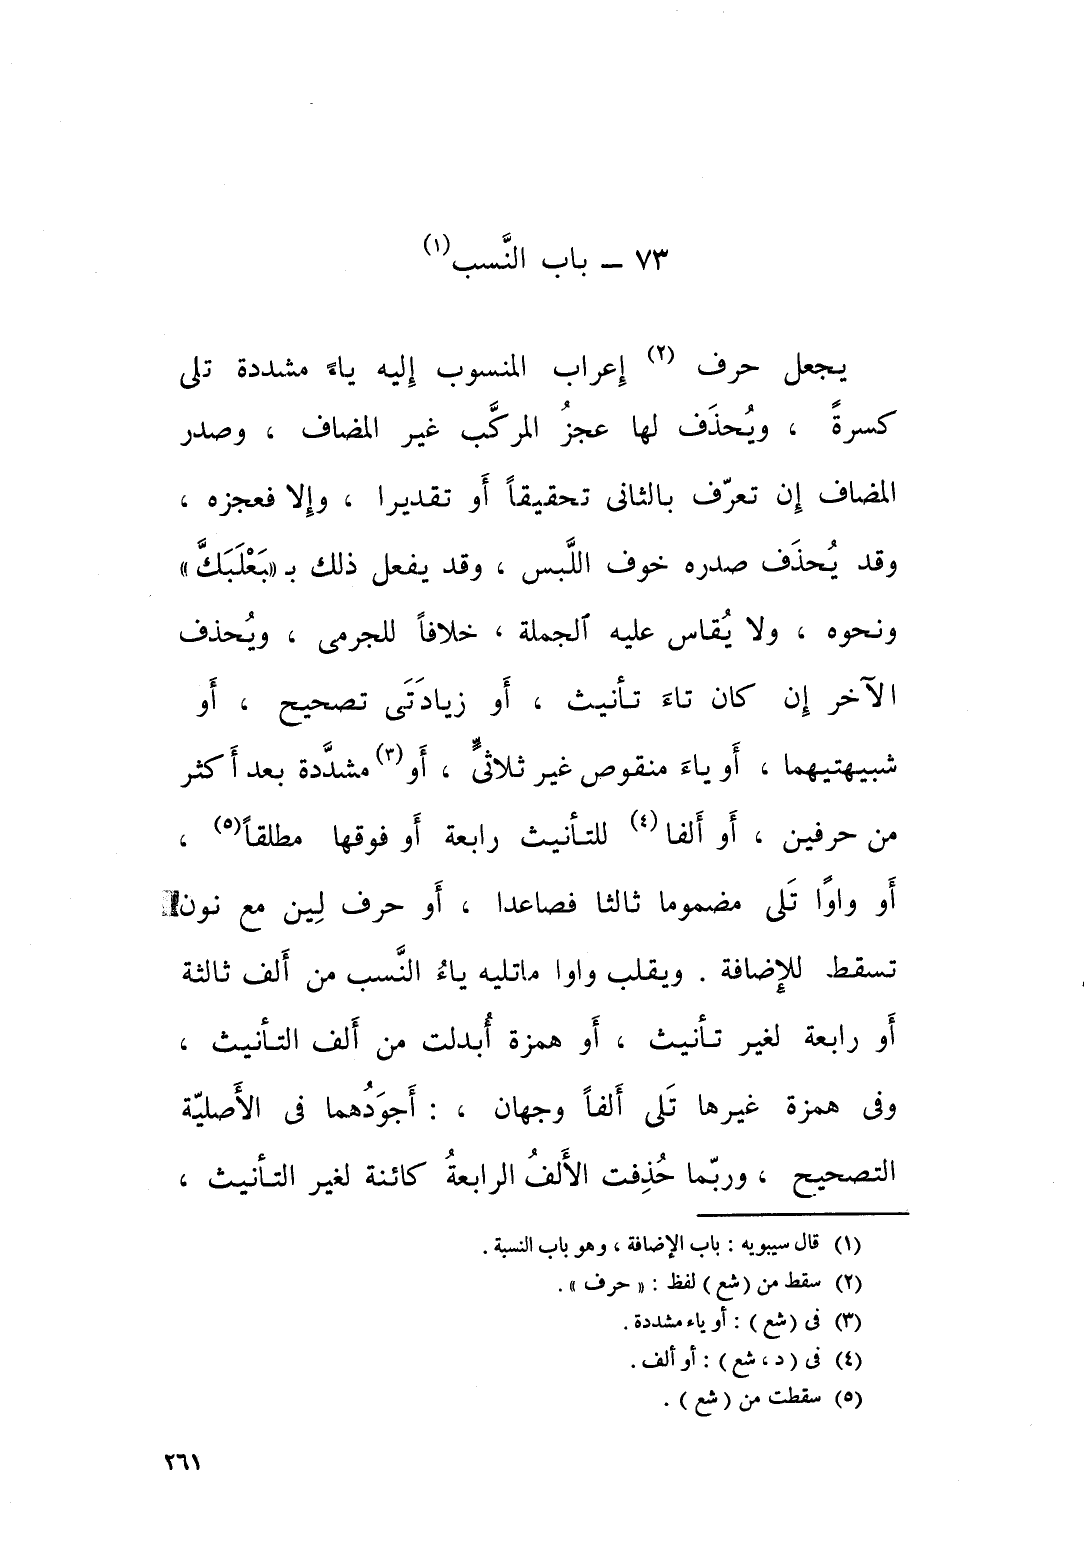 ٧٣ – باب النَّسب(١)
يجعل حرف (٢) إعراب المنسوب إليه ياءً مشددة تلى
كسرةً ، ويُحذَف لها عجزُ المركَّب غير المضاف ، وصدر
المضاف إن تعرّف بالثانى تحقيقاً أَو تقديرا ، وإلا فعجزه ،
وقد يُحذَف صدره خوف اللَّبس ، وقد يفعل ذلك بـ «بَعْلَبَكَّ»
ونحوه ، ولا يُقاس عليه الجملة ، خلافاً للجرمى ، ويُحذف
الآخر إن كان تاءَ تأنيث ، أَو زيادَتَى تصحيح ، أَو
شبيهتيهما ، أَو ياءَ منقوص غير ثلاثىٍّ ، أَو(٣) مشدَّدة بعد أَكثر
من حرفين ، أَو أَلفا (٤) للتأنيث رابعة أَو فوقها مطلقاً(٥) ،
أَو واوًا تَلى مضموما ثالثا فصاعدا ، أَو حرف لِين مع نون
تسقط للإِضافة . ويقلب واوا ماتليه ياءُ النَّسب من أَلف ثالثة
أَو رابعة لغير تأنيث ، أَو همزة أُبدلت من أَلف التأنيث ،
وفى همزة غيرها تَلى أَلفاً وجهان ، : أَجوَدُهما فى الأَصليّة
التصحيح ، وربّما حُذِفت الأَلفُ الرابعةُ كائنة لغير التأنيث ،
(١) قال سيبويه : باب الإضافة ، وهو باب النسبة .
(٢) سقط من (شع) لفظ : « حرف » .
(٣) فى (شع) : أو ياء مشددة .
(٤) فى (د ، شع) : أو ألف .
(٥) سقطت من (شع) .
٢٦١